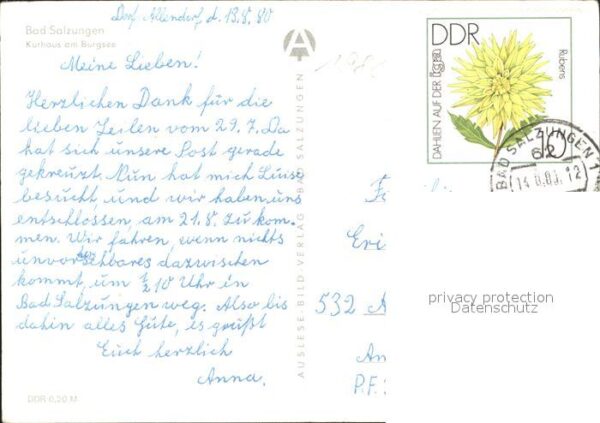 Bad Salzungen
Kurhaus am Burgsee
Dorf Allendorf, d. 13.8.80
Meine Lieben!
Herzlichen Dank für die
lieben Zeilen vom 29.7. Da
hat sich unsere Post gerade
gekreuzt. Nun hat mich Luise
besucht, und wir haben uns
entschlossen, am 21.8. zu kom-
men. Wir fahren, wenn nichts
unvorsehbares dazwischen
kommt, um ½10 Uhr in
Bad Salzungen weg. Also bis
dahin alles Gute, es grüßt
Euch herzlich
Anna.
DDR 0,20 M
AUSLESE-BILD-VERLAG BAD SALZUNGEN
DDR
DAHLIEN AUF DER
Rubens
10
BAD SALZUNGEN 1
62
14.8.80.12
Eri
532 A
An
P.F.:
privacy protection
Datenschutz